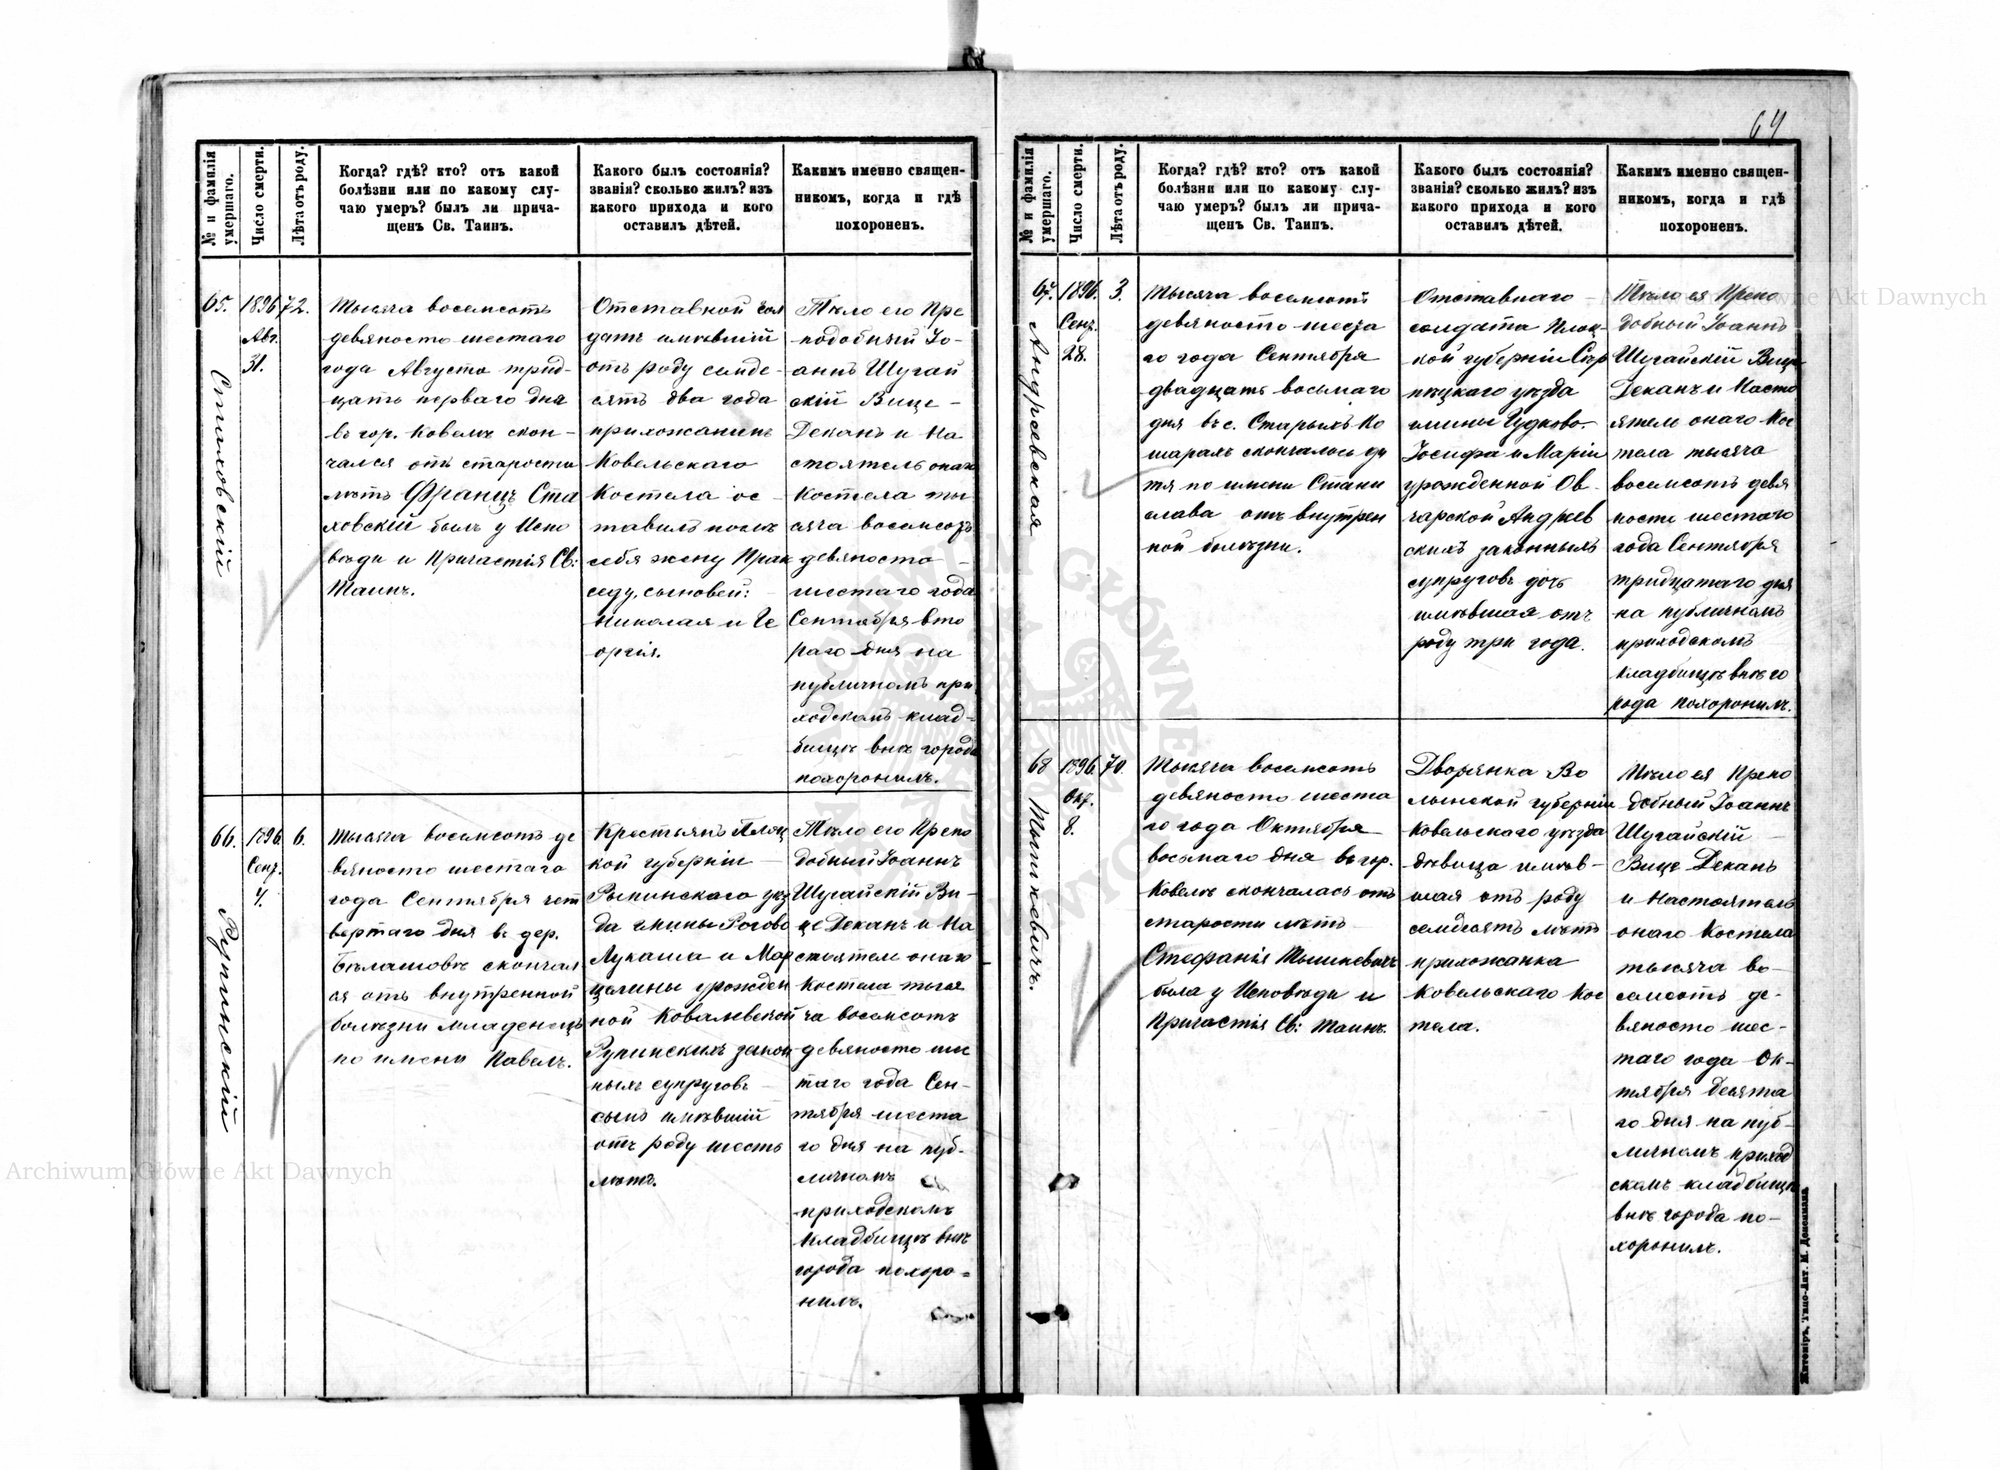 64
№ и фамилія умершаго.
Число смерти.
Лѣта отъ роду.
Когда? гдѣ? кто? отъ какой
болѣзни или по какому слу-
чаю умеръ? былъ ли прича-
щенъ Св. Таинъ.
Какого былъ состоянія?
званія? сколько жилъ? изъ
какого прихода и кого
оставилъ дѣтей.
Какимъ именно священ-
никомъ, когда и гдѣ
похороненъ.
65.
Стаховскій
1896
Авг.
31.
72.
Тысяча восемсотъ
девяносто шестаго
года Августа трид-
цать перваго дня
въ гор. Ковелѣ скон-
чался отъ старости
лѣтъ Францъ Ста
ховскій былъ у Испо
вѣди и Причастія Св:
Таинъ.
Отставной сол
датъ имѣвшій
отъ роду семде-
сятъ два года
прихожанинъ
Ковельскаго
Костела ос-
тавилъ послѣ
себя жену Прак
седу, сыновей:
Николая и Ге
оргія.
Тѣло его Пре
подобный Іо-
аннъ Шугай
скій Вице-
Деканъ и На
стоятель онаго
Костела ты
сяча восемсотъ
девяносто-
шестаго года
Сентября вто
раго дня на
публичномъ при
ходскомъ клад-
бищѣ внѣ города
похоронилъ.
66.
Рупинскій
1896.
Сент.
4.
6.
Тысяча восемсотъ де
вяносто шестаго
года Сентября чет
вертаго дня в дер.
Бѣлашовѣ скончал
ся отъ внутренной
болѣзни младенецъ
по имени Павелъ.
Крестьянъ Плоц
кой губерніи
Рыпинскаго уѣз
да гмины Рогово
Лукаша и Мар
целины урожден
ной Ковалевской
Рупинскихъ закон
ныхъ супруговъ
сынъ имѣвшій
отъ роду шесть
лѣтъ.
Тѣло его Препо
добный Іоаннъ
Шугайскій Ви-
це Деканъ и На
стоятель онаго
Костела тыся
ча восемсотъ
девяносто ше
стаго года Сен-
тября шеста
го дня на пуб-
личномъ
приходскомъ
кладбищѣ внѣ
города похоро-
нилъ.
№ и фамилія умершаго.
Число смерти.
Лѣта отъ роду.
Когда? гдѣ? кто? отъ какой
болѣзни или по какому слу-
чаю умеръ? былъ ли прича-
щенъ Св. Таинъ.
Какого былъ состоянія?
званія? сколько жилъ? изъ
какого прихода и кого
оставилъ дѣтей.
Какимъ именно священ-
никомъ, когда и гдѣ
похороненъ.
67.
Андреевская
1896.
Сент.
28.
3.
Тысяча восемсотъ
девяносто шеста
го года Сентября
двадцать восьмаго
дня въ с. Старыхъ Ко
шарахъ скончалось ди
тя по имени Стани
слава отъ внутрен
ной болѣзни.
Отставнаго
солдата Плоц-
кой губерніи Сер
пецкаго уѣзда
гмины
Іосифа и Маріи
урожденной Ов-
чарской Андреев
скихъ законныхъ
супруговъ дочь
имѣвшая отъ
роду три года.
Тѣло ея Препо
добный Іоаннъ
Шугайскій Вице
Деканъ и Насто
ятель онаго Кос
тела тысяча
восемсотъ девя
носто шестаго
года Сентября
тридцатаго дня
на публичномъ
приходскомъ
кладбищѣ внѣ го
рода похоронилъ.
68
Тышкевичъ.
1896
Окт.
8.
70.
Тысяча восемсотъ
девяносто шеста
го года Октября
восьмаго дня въ гор.
Ковелѣ скончалась отъ
старости лѣтъ
Стефанія Тышкевичъ
была у Исповѣди и
Причастія Св: Таинъ.
Дворянка Во
лынской губерніи
Ковельскаго уѣзда
дѣвица имѣв-
шая отъ роду
семдесятъ лѣтъ
прихожанка
Ковельскаго Кос
тела.
Тѣло ея Препо
добный Іоаннъ
Шугайскій
Вице Деканъ
и Настоятель
онаго Костела
тысяча во-
семсотъ де-
вяносто шес-
таго года Ок-
тября десята
го дня на пуб-
личномъ приход
скомъ кладбищѣ
внѣ города по-
хоронилъ.
Житоміръ, Типо-Лит. М. Дененмана.
Archiwum Główne Akt Dawnych
Archiwum Główne Akt Dawnych
ARCHIWUM GŁÓWNE AKT DAWNYCH